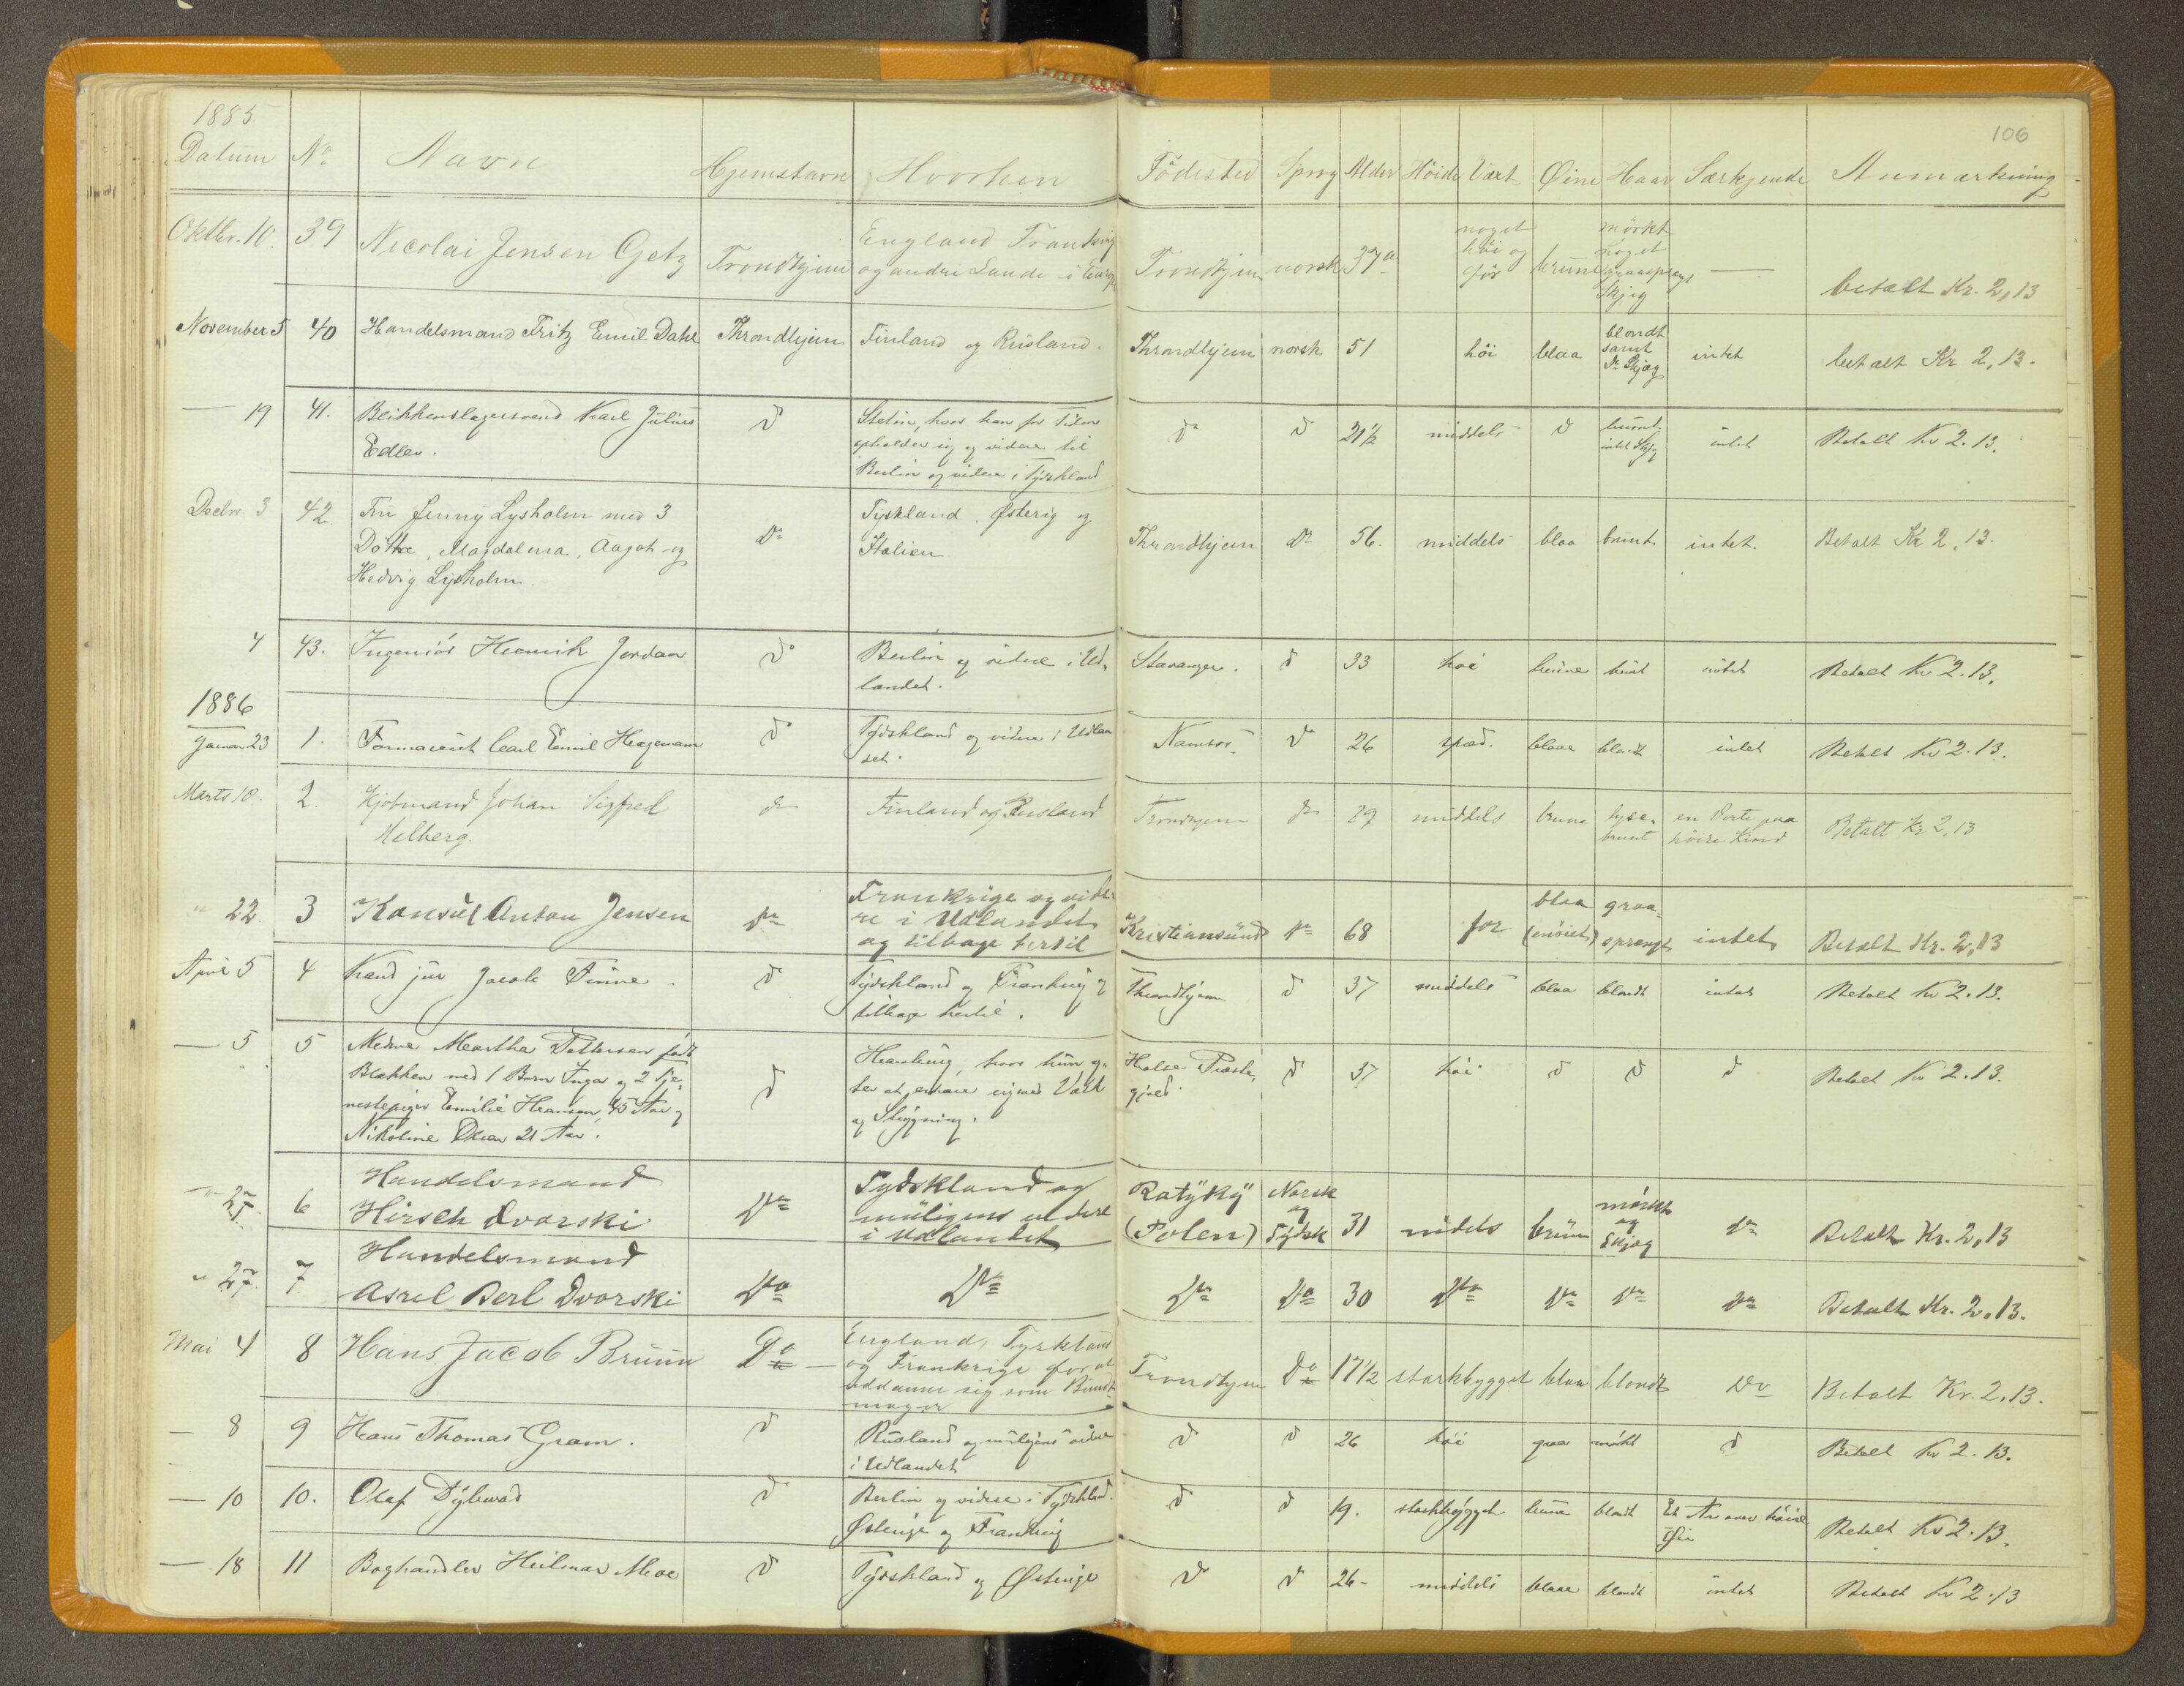 1885.
106
Datum No Navn Hjemstavn Hvorhen Födested Sprog Alder Höide Væxt Øine Haar Særkjende Anmærkning
Oktbr. 10. 39 Nicolai Jensen Getz Trondhjem England Frankrig
og andre Lande i Europa Trondhjem norsk 37 noget
høi og
før brune mörkt
noget
graasprængt
Skjæg — betalt Kr. 2,13
November 5 40 Handelsmand Fritz Emil Dahl Throndhjem Finland og Rusland. Throndhjem norsk 51 höi blaa blondt
samt
Do Skjæg intet betalt Kr 2,13.
— 19 41. Blikkenslagersvend Karl Julius
Edler. Do Stetin, hvor han for Tiden
opholder sig og videre til
Berlin og videre i Tydskland Do Do 21 1/2 middels Do brunt
intet Skjæg intet Betalt Kr 2.13.
Decbr. 3 42. Fru Jenny Lysholm med 3
Døttre, Magdalena, Aagot og
Hedvig Lysholm. Do Tyskland, Østerig og
Italien Throndhjem Do 56. middels blaa brunt intet. Betalt Kr 2,13.
4 43. Ingeniör Henrik Jordan Do Berlin og videre i Ud-
landet. Stavanger. Do 33 höi brune brunt intet Betalt Kr 2.13.
1886
Januar 23 1. Farmaceut Carl Emil Hageman Do Tydskland og videre i Udlan
det. Namsos Do 26 spæd. blaae blondt intet Betalt Kr 2.13.
Marts 18. 2. Kjöbmand Johan Sigfred
Melberg. Do Finland og Rusland Trondhjem Do 29 middels brune lyse-
brunt en Vorte paa
höire Kind Betalt Kr 2,13
" 22. 3 Konsul Anton Jensen Do Frankrige og vide-
re i Udlandet
og tilbage hertil Kristiansund Do 68 for blaa
(enöiet) graa-
sprængt intet Betalt Kr. 2,13
April 5 4 Kand jur Jacob Finne. Do Tydskland og Frankrig og
tilbage hertil. Throndhjem Do 37 middels blaa blondt intet Betalt Kr 2.13.
— 5 5 Madme Martha Pettersen födt
Blekken med 1 Barn Inga og 2 Tje-
nestepiger Emilie Hansen, 45 Aar og
Nikoline 21 Aar. Do Hamburg, hvor hun
og Strygning. Halse Præste-
gjæld. Do 37 höi Do Do Do Betalt Kr 2.13.
" 27 6 Handelsmand
Hirsch Dvorski Do Tydskland og
muligens videre
i Udlandet Ratÿkÿ
(Polen) Norsk
og
Tydsk 31 midels brune mörkt
og
Skjæg Do Betalt Kr. 2,13
" 27 7 Handelsmand
Asrel Berl Dvorski Do Do Do Do 30 Do Do Do Do Betalt Kr. 2,13.
Mai 4 8 Hans Jacob Bruun Do — England, Tyskland
og Frankrige for at
uddanne sig som Bundt
mager Trondhjem Do 17 1/2 starkbygget blaa blondt Do Betalt Kr. 2,13.
— 8 9 Hans Thomas Gram. Do Rusland og muligens videre
i Udlandet Do Do 26 höi graa mörkt Do Betalt Kr 2.13.
— 10 10. Olaf Dÿbwad Do Berlin og videre i Tydskland.
Østerige og Frankrig Do Do 19. starkbygget brune blondt Et Ar over höire
Øie Betalt Kr 2.13.
— 18 11 Boghandler Heilmar Moe Do Tydskland og Østerige Do Do 26 - middels blaae blondt intet Betalt Kr 2.13